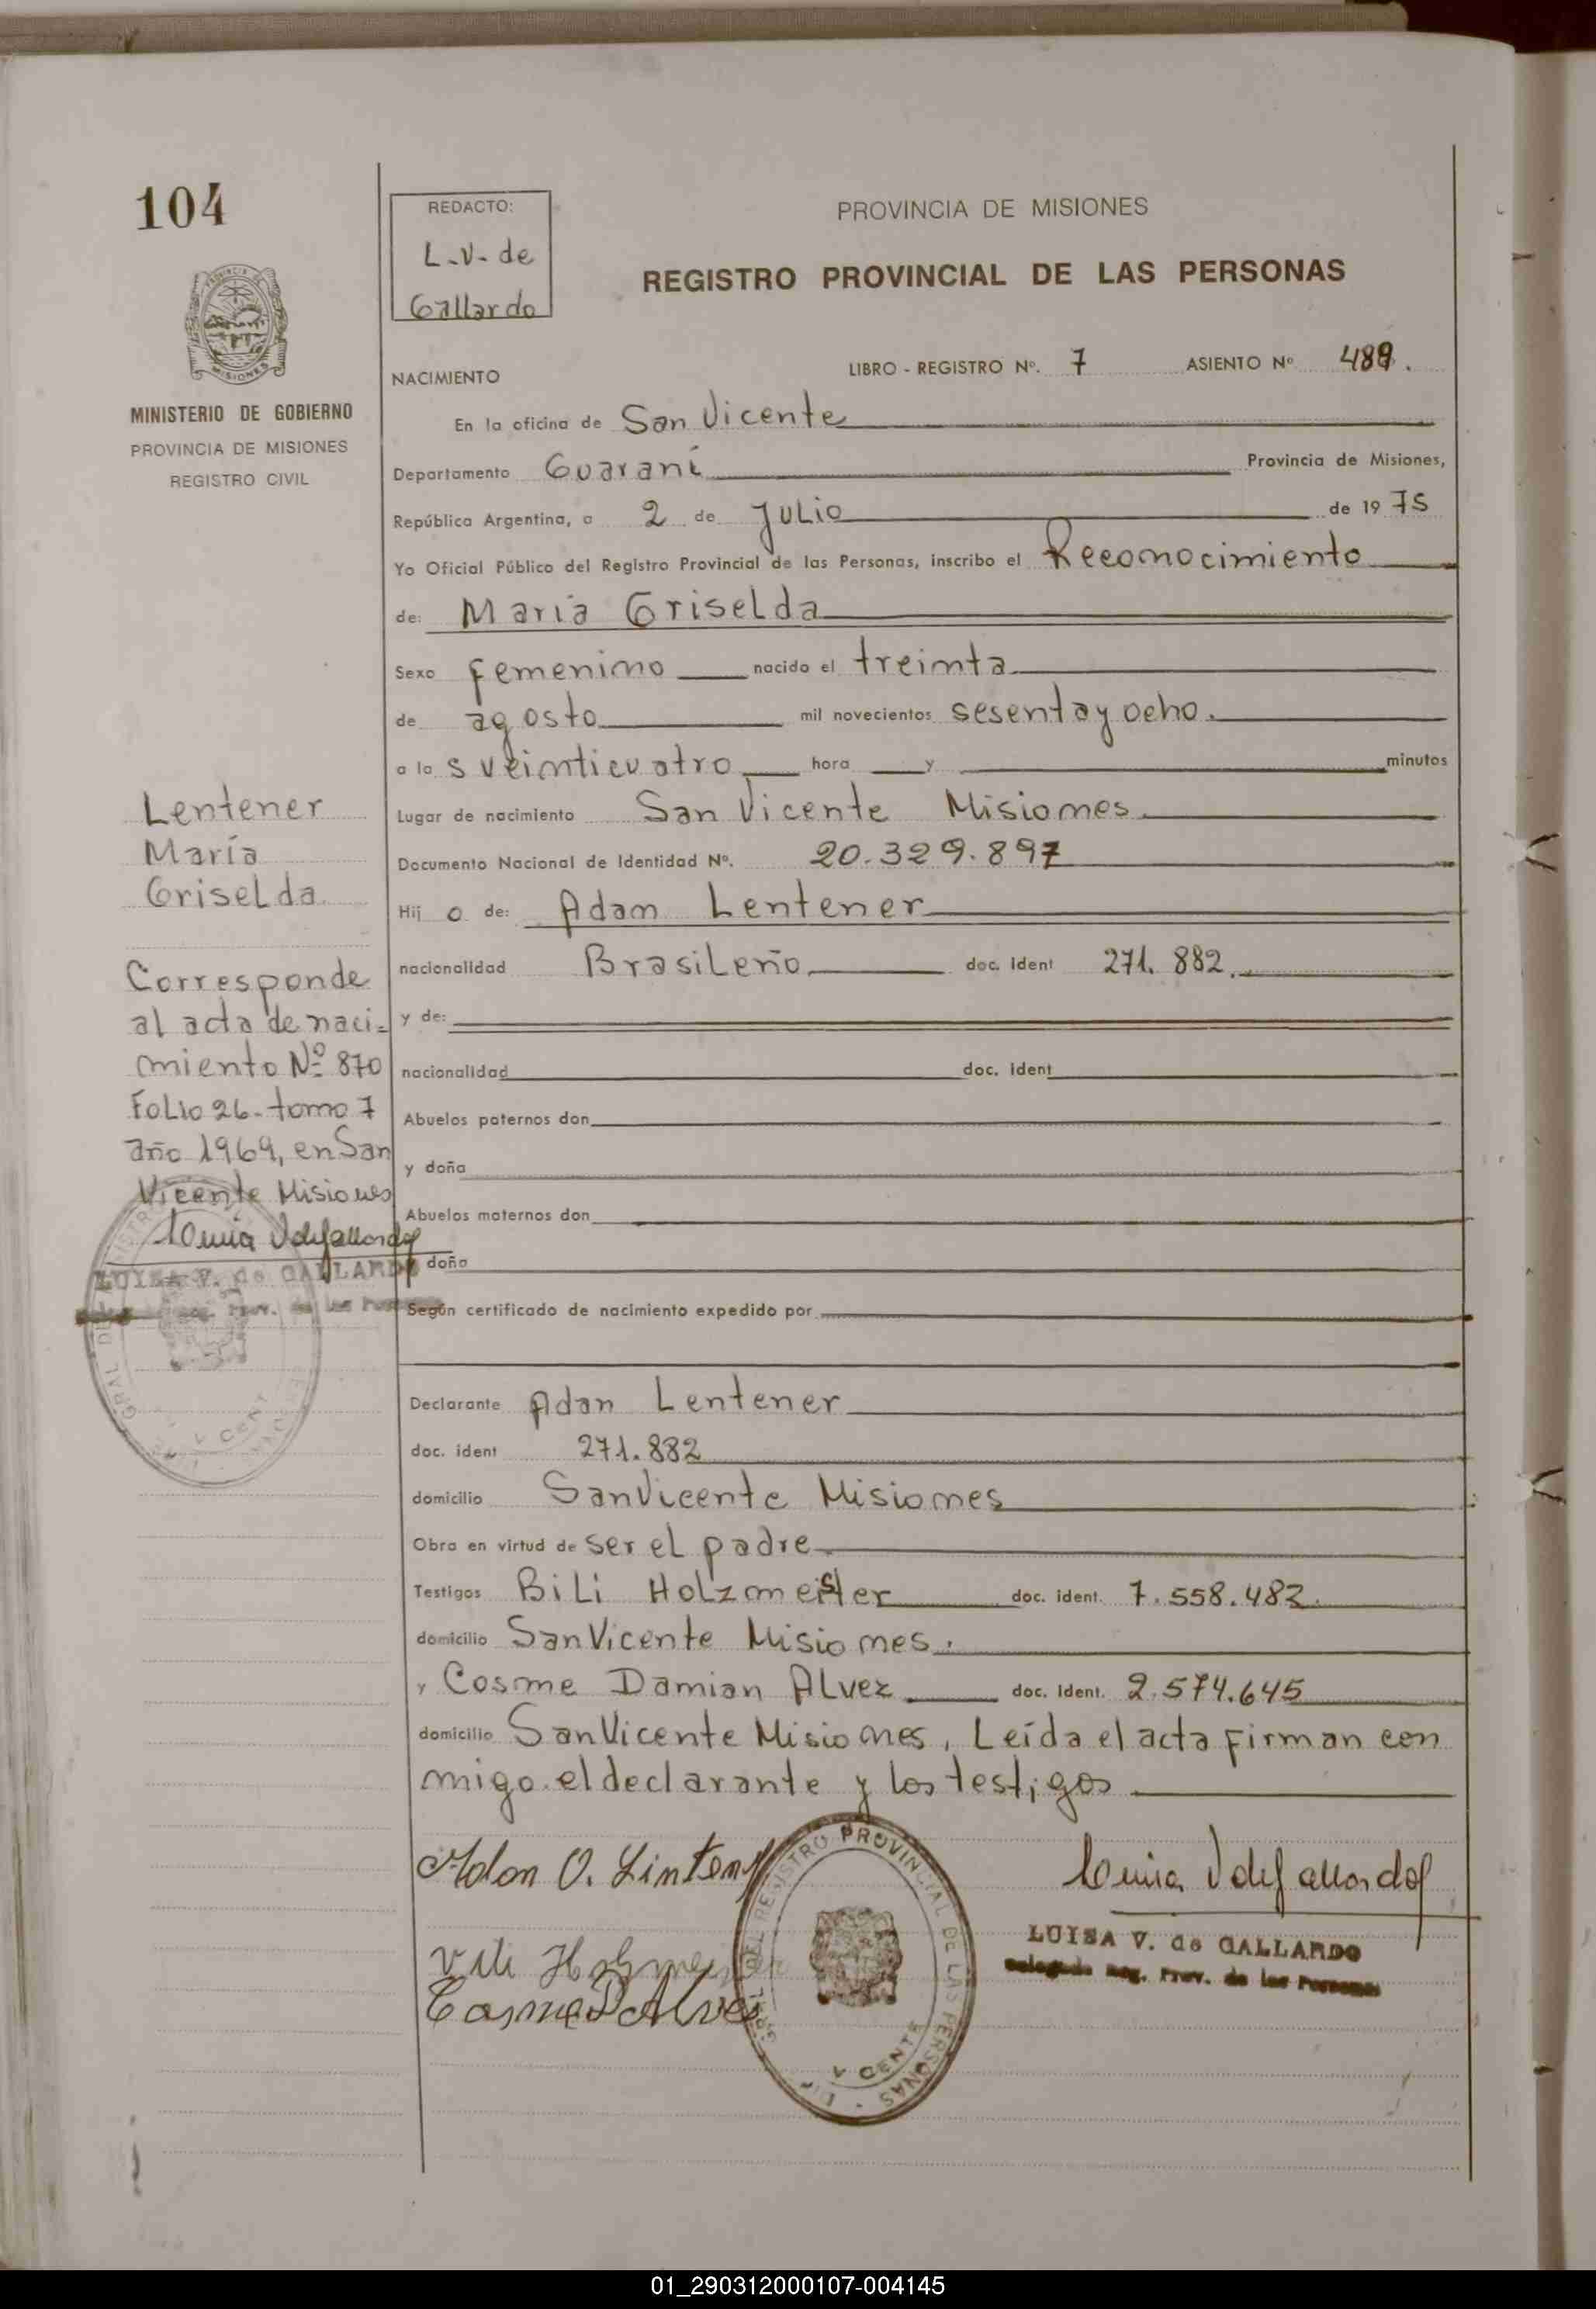 104
REDACTO:
L.V. de
Gallardo
PROVINCIA DE MISIONES
REGISTRO PROVINCIAL DE LAS PERSONAS
MINISTERIO DE GOBIERNO
PROVINCIA DE MISIONES
REGISTRO CIVIL
NACIMIENTO
LIBRO - REGISTRO Nº. 7 ASIENTO Nº 489.
En la oficina de San Vicente
Departamento Guaraní Provincia de Misiones,
República Argentina, a 2 de JULio de 1975
Yo Oficial Público del Registro Provincial de las Personas, inscribo el Reconocimiento
de: María GriseLda
Sexo femenino nacido el treinta
de agosto mil novecientos sesenta y ocho.
a las veinticuatro hora y minutos
Lugar de nacimiento San Vicente Misiones
Documento Nacional de Identidad Nº. 20.329.897
Hijo de: Adam Lentener
nacionalidad BrasiLeño doc. ident 271.882.
y de:
nacionalidad doc. ident
Abuelos paternos don
y doña
Abuelos maternos don
doña
Según certificado de nacimiento expedido por
Declarante Adan Lentener
doc. ident 271.882
domicilio San Vicente Misiones
Obra en virtud de ser eL padre
Testigos BiLi HoLzmeister doc. ident. 7.558.482.
domicilio San Vicente Misiones.
y Cosme Damian ALvez doc. ident. 2.574.645
domicilio San Vicente Misiones, Leída el acta firman con
migo el declarante y los testigos
Lentener
María
GriseLda
Corresponde
al acta de naci=
miento Nº 870
FoLio 26-tomo 7
año 1969, en San
Vicente Misiones
LUISA V. de GALLARDO
Reg. Prov. de las Personas
Adan O. Linten
Vili Holzmeister
Cosme D Alves
REGISTRO PROVINCIAL DE LAS PERSONAS
LUISA V. de GALLARDO
Delegada Reg. Prov. de las Personas
01_290312000107-004145